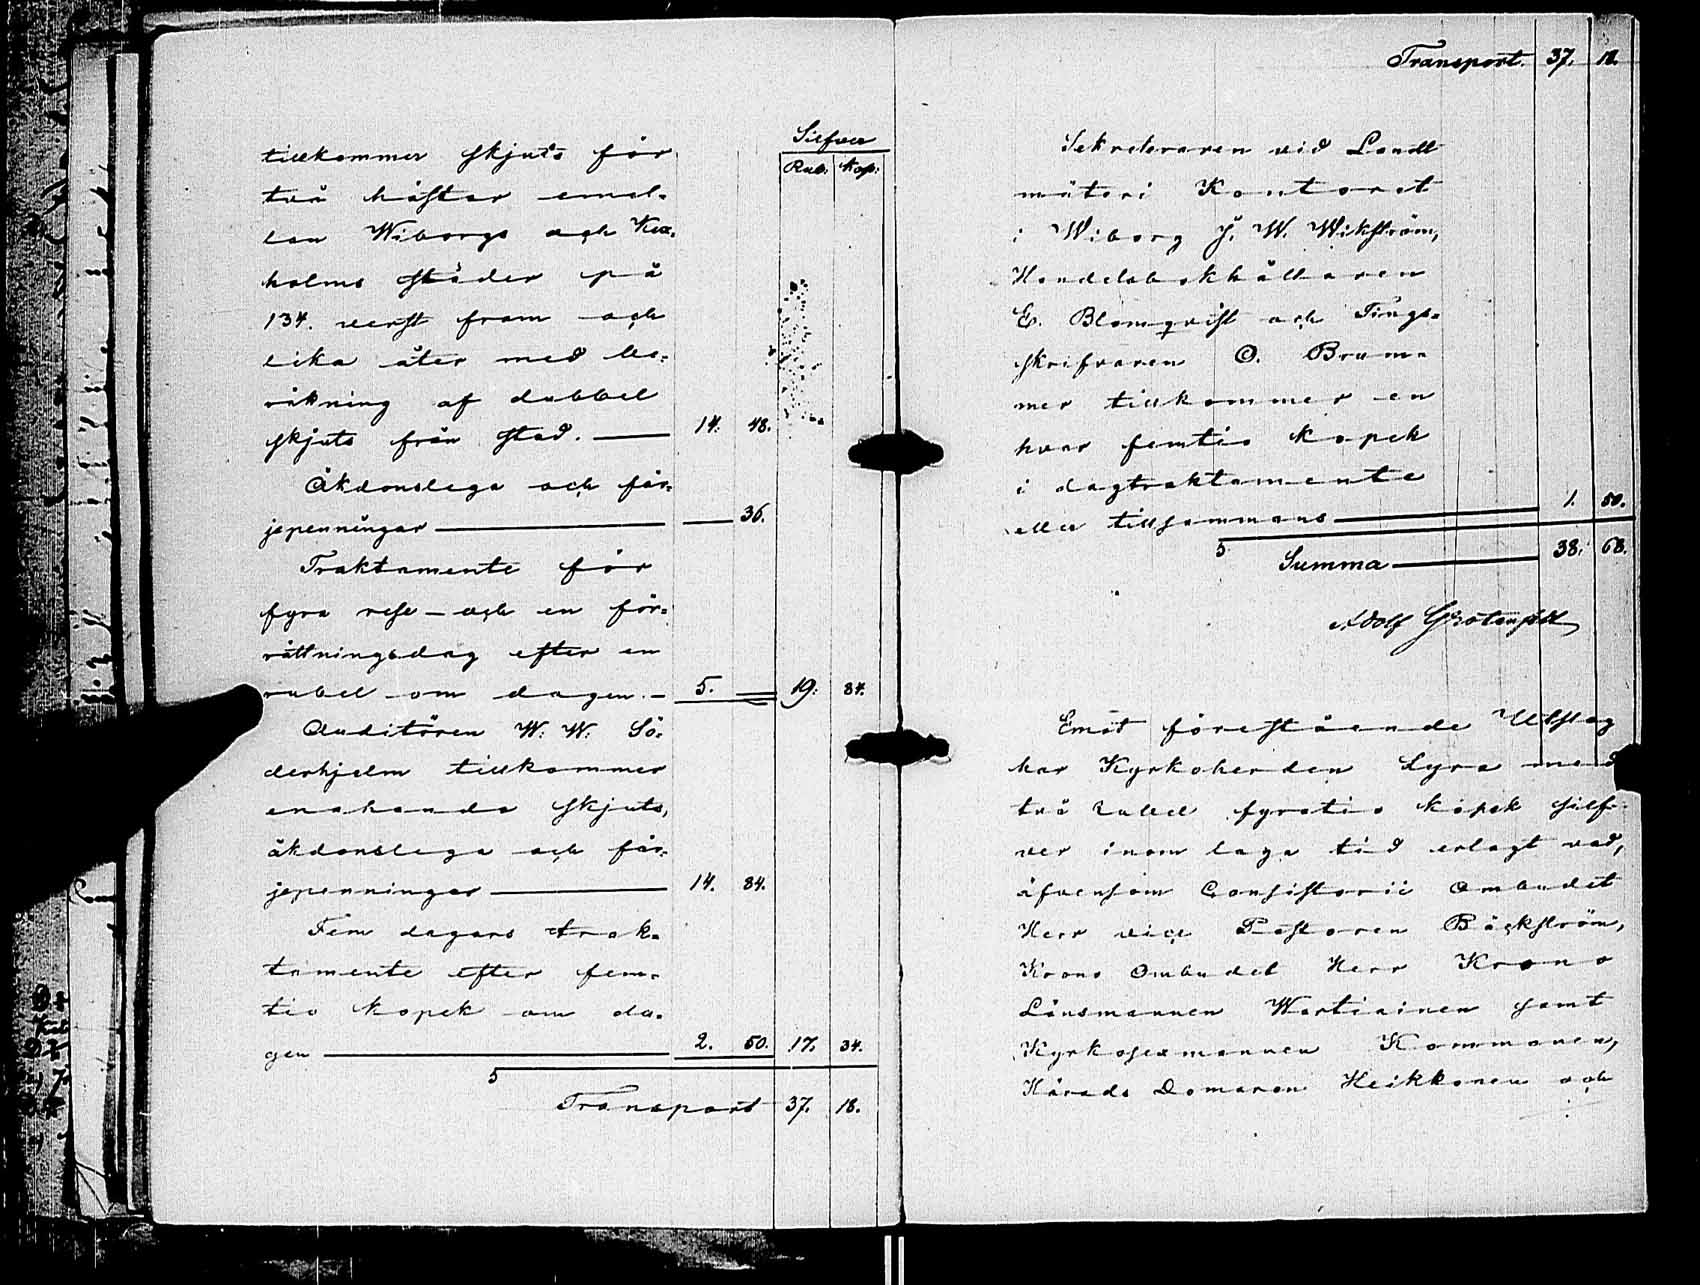 Silfver
Rub. Kop.
tillkommer skjuts för
två hästar emel-
lan Wiborgs och Kex-
holms städer på
134. verst fram och
lika åter med be-
räkning af dubbel
skjuts från stad. 14. 48.
Åkdonslega och fär-
jepenningar 36.
Traktamente för
fyra rese- och en för-
rättningsdag efter en
rubel om dagen. 5. 19. 84.
Auditören W. W. Sö-
derhjelm tillkommer
enahanda skjuts,
åkdonslega och fär-
jepenningar 14. 84.
Fem dagars trak-
tamente efter fem-
tio kopek om da-
gen 2. 50. 17. 34.
Transport 37. 18.
Transport. 37. 18.
Sekreteraren vid Landt
mäteri Kontoret
i Wiborg J. W. Wikström,
Handelsbokhållaren
E. Blomqvist och Tings-
skrifvaren O. Brum-
mer tillkommer en
hvar femtio kopek
i dagtraktamente
eller tillsammans 1. 50.
Summa 38. 68.
Adolf Grotenfelt
Emot förestående Utslag
har Kyrkoherden Lyra med
två rubel fyratio kopek silf-
ver inom laga tid erlagt vad,
äfvensom Consistorii Ombudet
Herr vice Pastoren Bäckström,
Krono Ombudet Herr Krono
Länsmannen Wartiainen samt
Kyrkosexmannen Kommonen,
Härads Domaren Heikkonen och